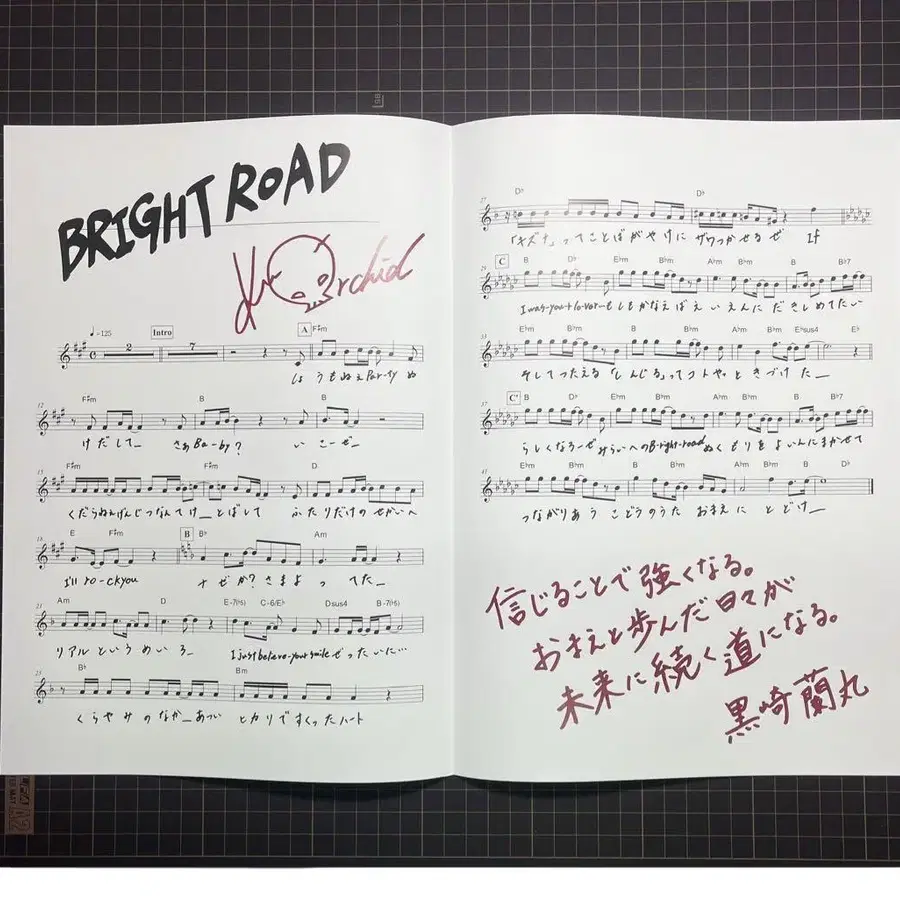 BRIGHT ROAD
♩=125 Intro A F♯m
2 7
しょうもねえ Par-ty ぬ
12 F♯m B B
けだして_ さあ Ba-by? いこーぜー
15 F♯m F♯m D
くだらねえげんじつなんてけ_とばして ふたりだけのせかいへ
18 E F♯m B B♭ Am
I'll ro-ck you ナゼか?さまよってた_
21 Am D E-7(♭5) C-6/E♭ Dsus4 B-7(♭5)
リアルというめいろ_ I just believe-your smile ぜったいに…
25 B♭ Bm
くらやみのなか_あつい ヒカリですくったハート
27 D♭ D♭
「キズナ」ってことばがやけにザワつかせるぜ If
29 C B D♭ E♭m B♭m B A♭m B♭m B B♭7
I was-you+lo-ver-もしもかなえばえいえんにだきしめてたい
33 E♭m B♭m B B♭m B A♭m B♭m E♭sus4 E♭
そしてつたえる「しんじる」ってコトやっときづけた_
37 C' B D♭ E♭m B♭m B A♭m B♭m B B♭7
らしくなろーぜみらいへのB-right-road ぬくもりをよいんにまかせて
41 E♭m B♭m B B♭m A♭m B♭m B D♭
つながりあうこどうのうた おまえにとどけ_
信じることで強くなる。
おまえと歩んだ日々が
未来に続く道になる。
黒崎蘭丸